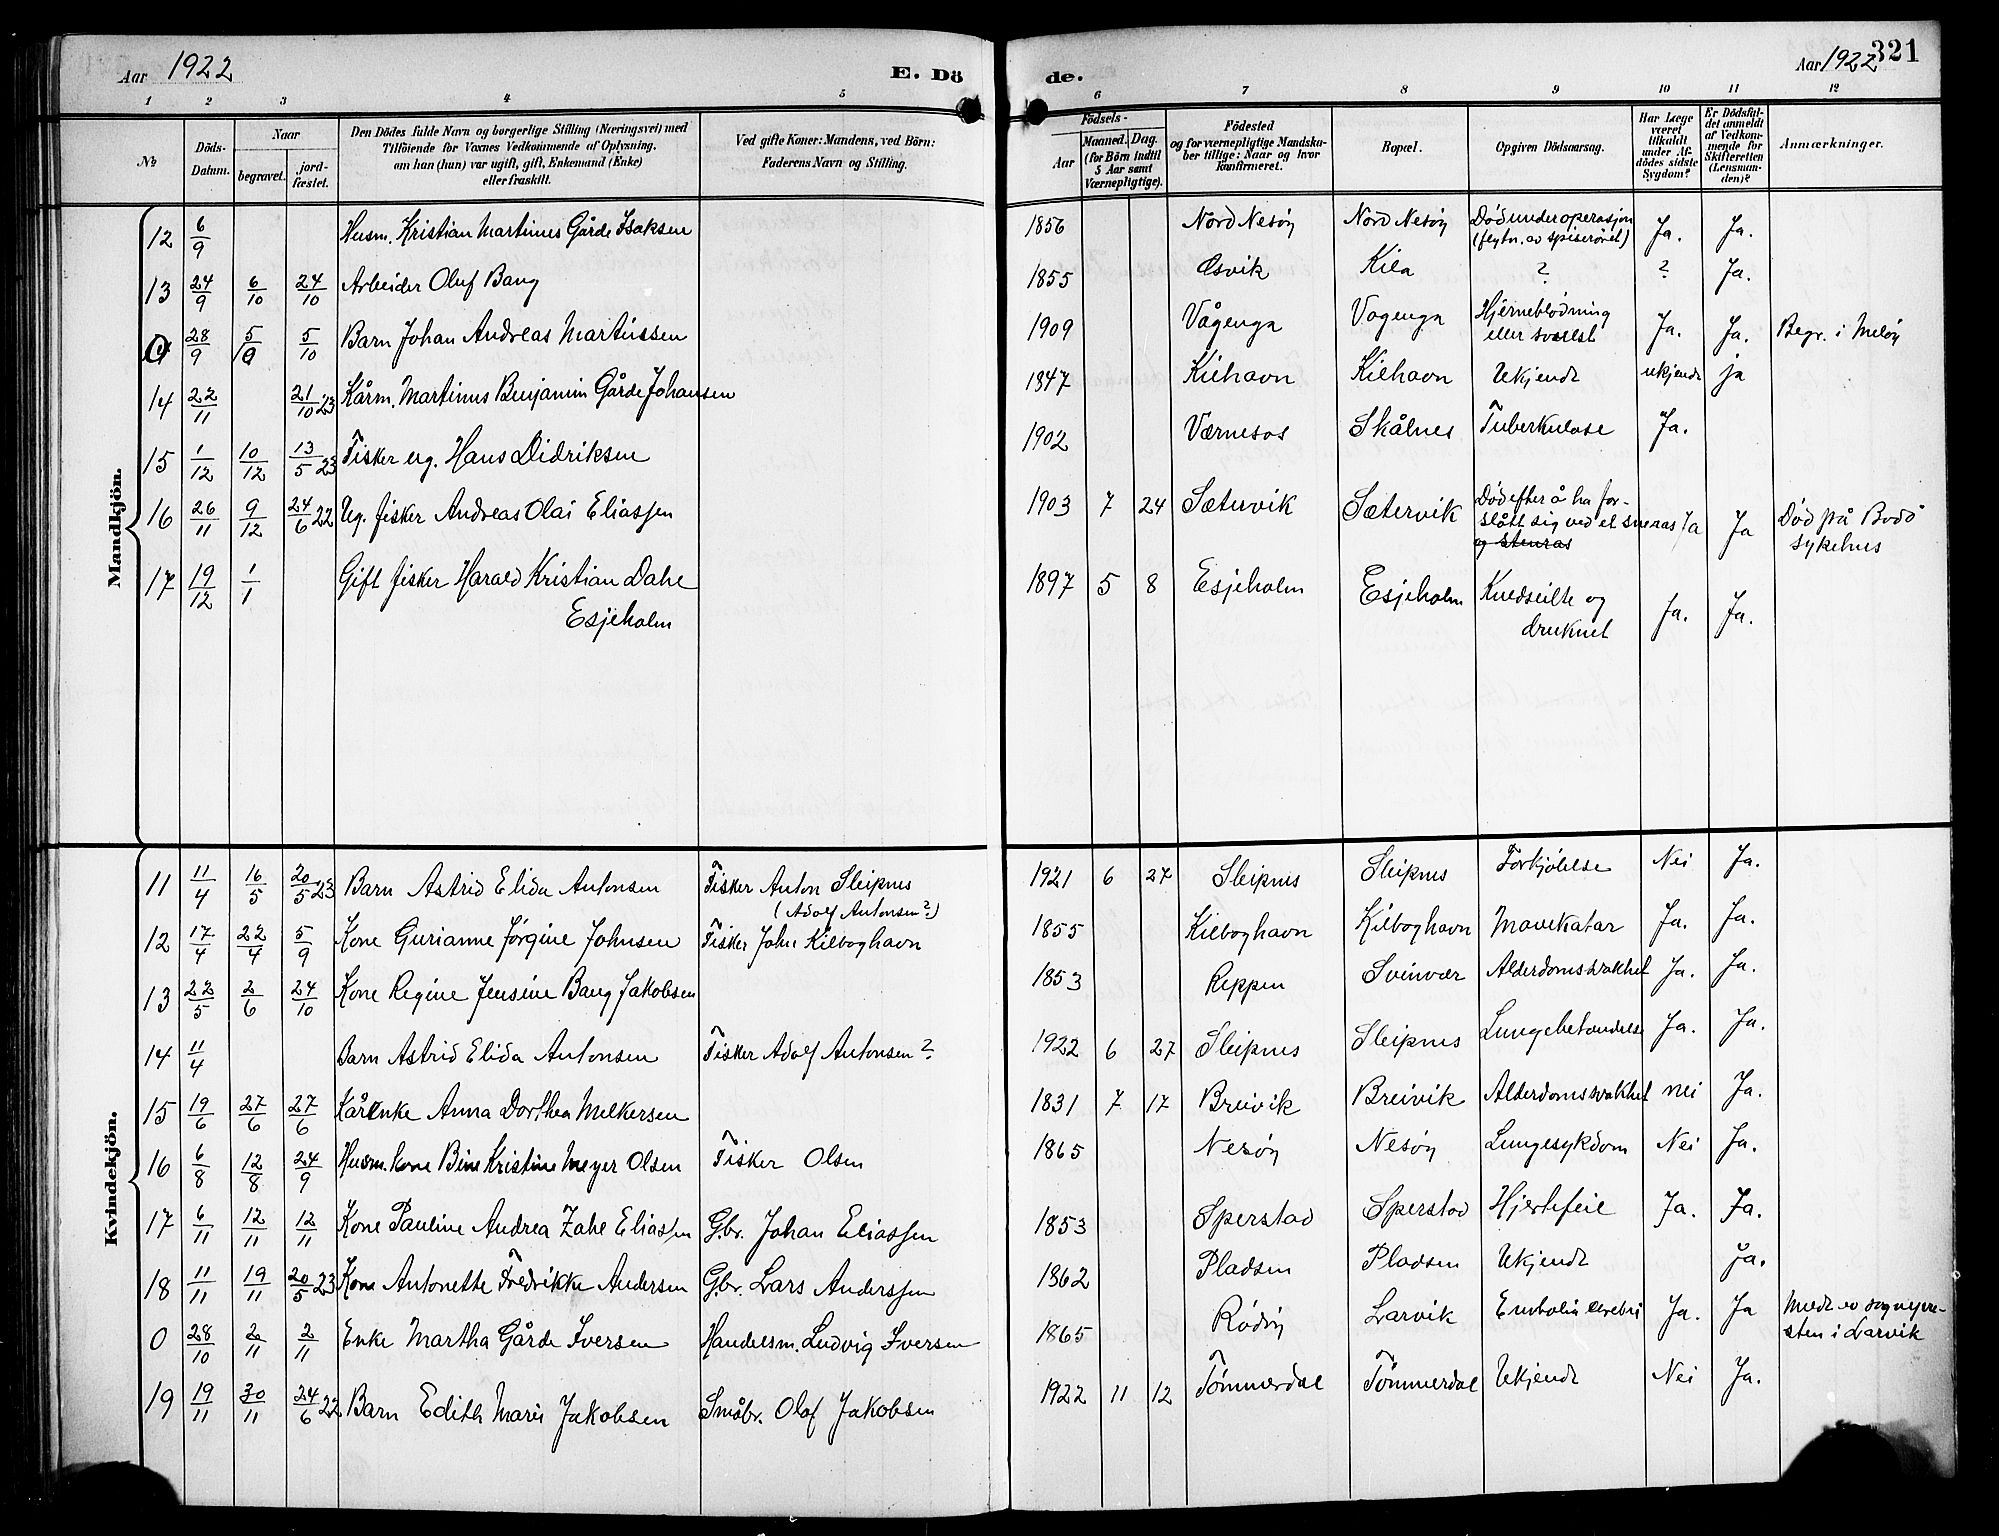 Aar 1922 E. Dö de. Aar 1922 321
1 2 3 4 5 6 7 8 9 10 11 12
No
Döds-Datum.
Naar
begravet.
jord-fæstet.
Den Dödes fulde Navn og borgerlige Stilling (Næringsvei) med
Tilföiende for Voxnes Vedkommende af Oplysning.
om han (hun) var ugift, gift, Enkemand (Enke)
eller fraskilt.
Ved gifte Koner: Mandens, ved Börn:
Faderens Navn og Stilling.
Födsels-
Aar
Maaned. Dag.
(for Börn indtil
5 Aar samt
Værnepligtige).
Födested
og for værnepligtige Mandska-
ber tillige: Naar og hvor
konfirmeret.
Bopæl.
Opgiven Dödsaarsag.
Har Læge
været
tilkaldt
under Af-
dödes sidste
Sygdom?
Er Dödsfal-
det anmeldt
af Vedkom-
mende for
Skifteretten
(Lensman-
den)?
Anmærkninger.
Mandkjön.
12 6/9 Husm. Kristian Martinus Gårde Isaksen 1856 Nord Nesöy Nord Nesöy Död under operasjon Ja. Ja.
av spiseröret)
13 24/9 6/10 24/10 Arbeider Oluf Bang 1855 Esvik Kila ? ? Ja.
0 28/9 5/10 5/10 Barn Johan Andreas Martinssen 1909 Vågenga Vagenga Hjerneblödning Ja. Ja. Begr. i Melöy
eller
14 22/11 21/10 23 Kårm. Martinus Benjamin Gårde Johansen 1847 Kilhavn Kilhavn Ukjendt ukjendt ja
15 1/12 10/12 13/5 23 Fisker ug. Hans Didriksen 1902 Værnesos Skålnes Tuberkulose Ja.
16 26/11 9/12 24/6 22 Ug. fisker Andreas Olai Eliassen 1903 7 24 Sætervik Sætervik Död efter å ha for-
slått sig ved et sneras Ja Ja Död på Bodö
og stenras sykehus
17 19/12 1/1 Gift fisker Harald Kristian Dahl 1897 5 8 Esjeholm Esjeholm Kuldseilte og Ja. Ja.
Esjeholm druknet
Kvindekjön.
11 11/4 16/5 20/5 23 Barn Astrid Elida Antonsen Fisker Anton Sleipnes 1921 6 27 Sleipnes Sleipnes Forkjölelse Nei Ja.
(Adolf Antonsen?)
12 17/4 22/4 5/9 Kone Gurianne Jörgine Johnsen Fisker John Kilboghavn 1855 Kilboghavn Kilboghavn Mavekatar Ja. Ja.
13 22/5 2/6 24/10 Kone Regine Jensine Bang Jakobsen 1853 Reppen Svinvær Alderdomssvakhet Ja. Ja.
14 11/4 Barn Astrid Elida Antonsen Fisker Adolf Antonsen? 1922 6 27 Sleipnes Sleipnes Lungebetændelse Ja. Ja.
15 19/6 27/6 27/6 Kårenke Anna Dorthea Melkersen 1831 7 17 Breivik Breivik Alderdomssvakhet nei Ja.
16 6/8 12/8 24/9 Husm. kone Bine Kristine Meyer Olsen Fisker Olsen 1865 Nesöy Nesöy Lungesykdom Nei Ja.
17 6/11 12/11 12/11 Kone Pauline Andrea Zahl Eliassen Gbr. Johan Eliassen 1853 Sperstad Sperstad Hjertefeil Ja. Ja.
18 11/11 19/11 20/5 23 Kone Antonette Fredrikke Andersen Gbr. Lars Anderssen 1862 Pladsen Pladsen Ukjendt Ja.
0 28/10 2/11 2/11 Enke Martha Gårde Iversen Handelsm. Ludvig Iversen 1865 Rödöy Larvik Embolia cerebri Ja. Ja Meldt av sognepre-
sten i Larvik
19 19/11 30/11 24/6 22 Barn Edith Marie Jakobsen Småbr. Olaf Jakobsen 1922 11 12 Tömmerdal Tömmerdal Ukjendt Nei Ja.